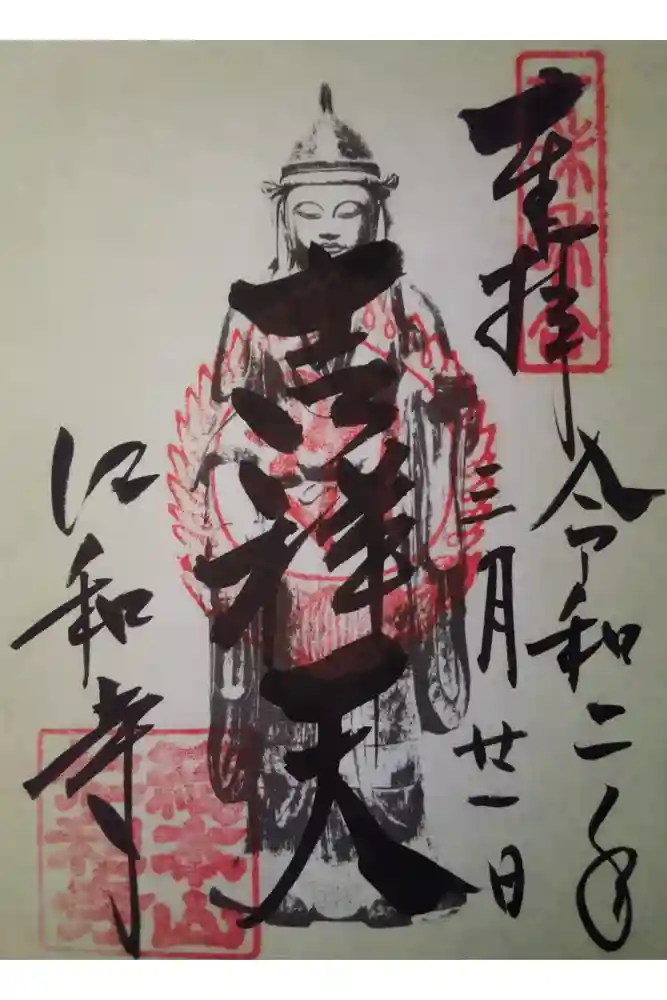 奉拝
令和二年
三月廿一日
吉祥天
江和寺